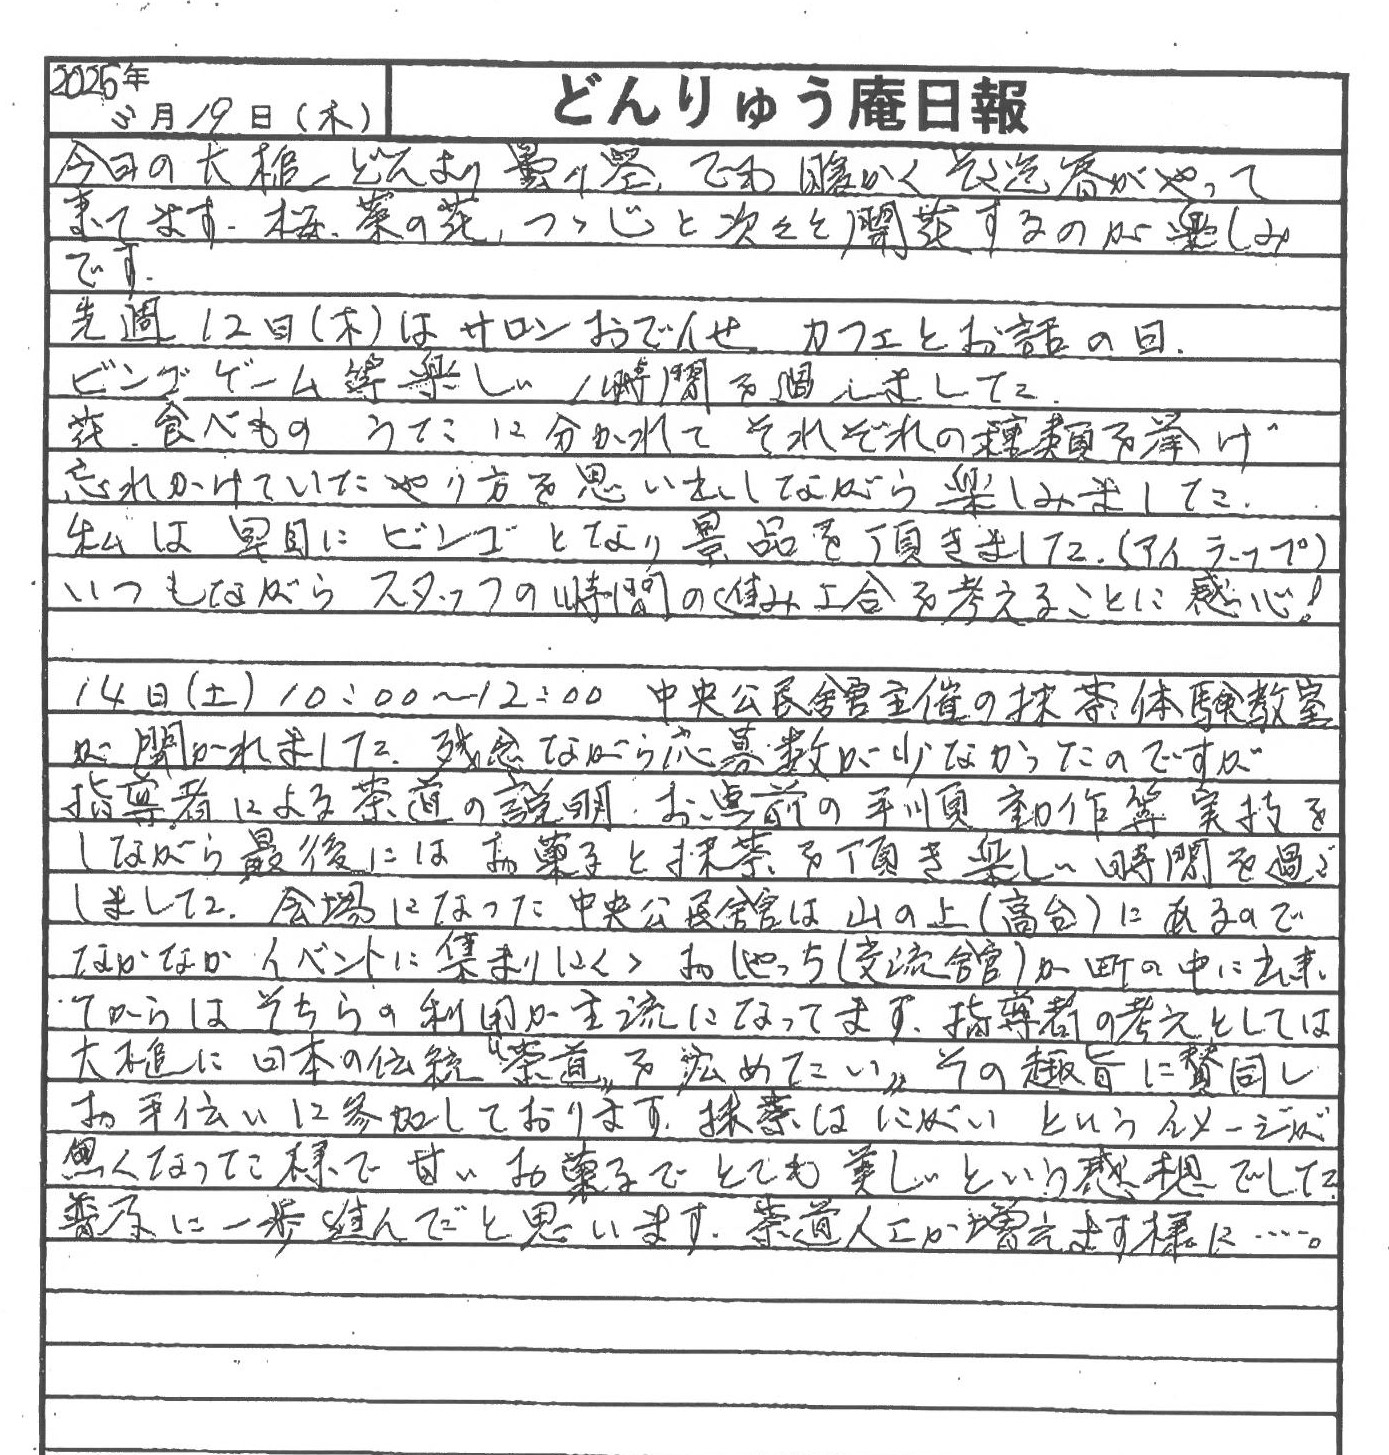 2026年
3月19日(木)
どんりゅう庵日報
今日の大槌、どんより曇り空、でも暖かく春がやって
来てます。梅、菜の花、つつじと次々と開花するのが楽しみ
です。
先週12日(木)はサロンおでんせ カフェとお話の日。
ビンゴゲーム等楽しい時間を過しました。
花、食べもの うたに分かれて それぞれの種類を挙げ
忘れかけていたやり方を思い出しながら楽しみました。
私は早目にビンゴとなり景品を頂きました。(アイラップ)
いつもながらスタッフの時間の進み工合を考えることに感心!
14日(土)10:00~12:00 中央公民舘主催の抹茶体験教室
が開かれました。残念ながら応募数が少なかったのですが
指導者による茶道の説明、お点前の手順動作等実技を
しながら最後にはお菓子と抹茶を頂き楽しい時間を過ご
しました。会場になった中央公民舘は山の上(高台)にあるので
なかなかイベントに集まりにくく おしゃっち(交流舘)が町の中に出来
てからはそちらの利用が主流になってます。指導者の考えとしては
大槌に日本の伝統“茶道”を広めたい〟その趣旨に賛同し
お手伝いに参加しております。抹茶はにがいというイメージが
無くなった様で甘いお菓子でとても美しいという感想でした。
普及に一歩進んだと思います。茶道人口が増えます様に……。